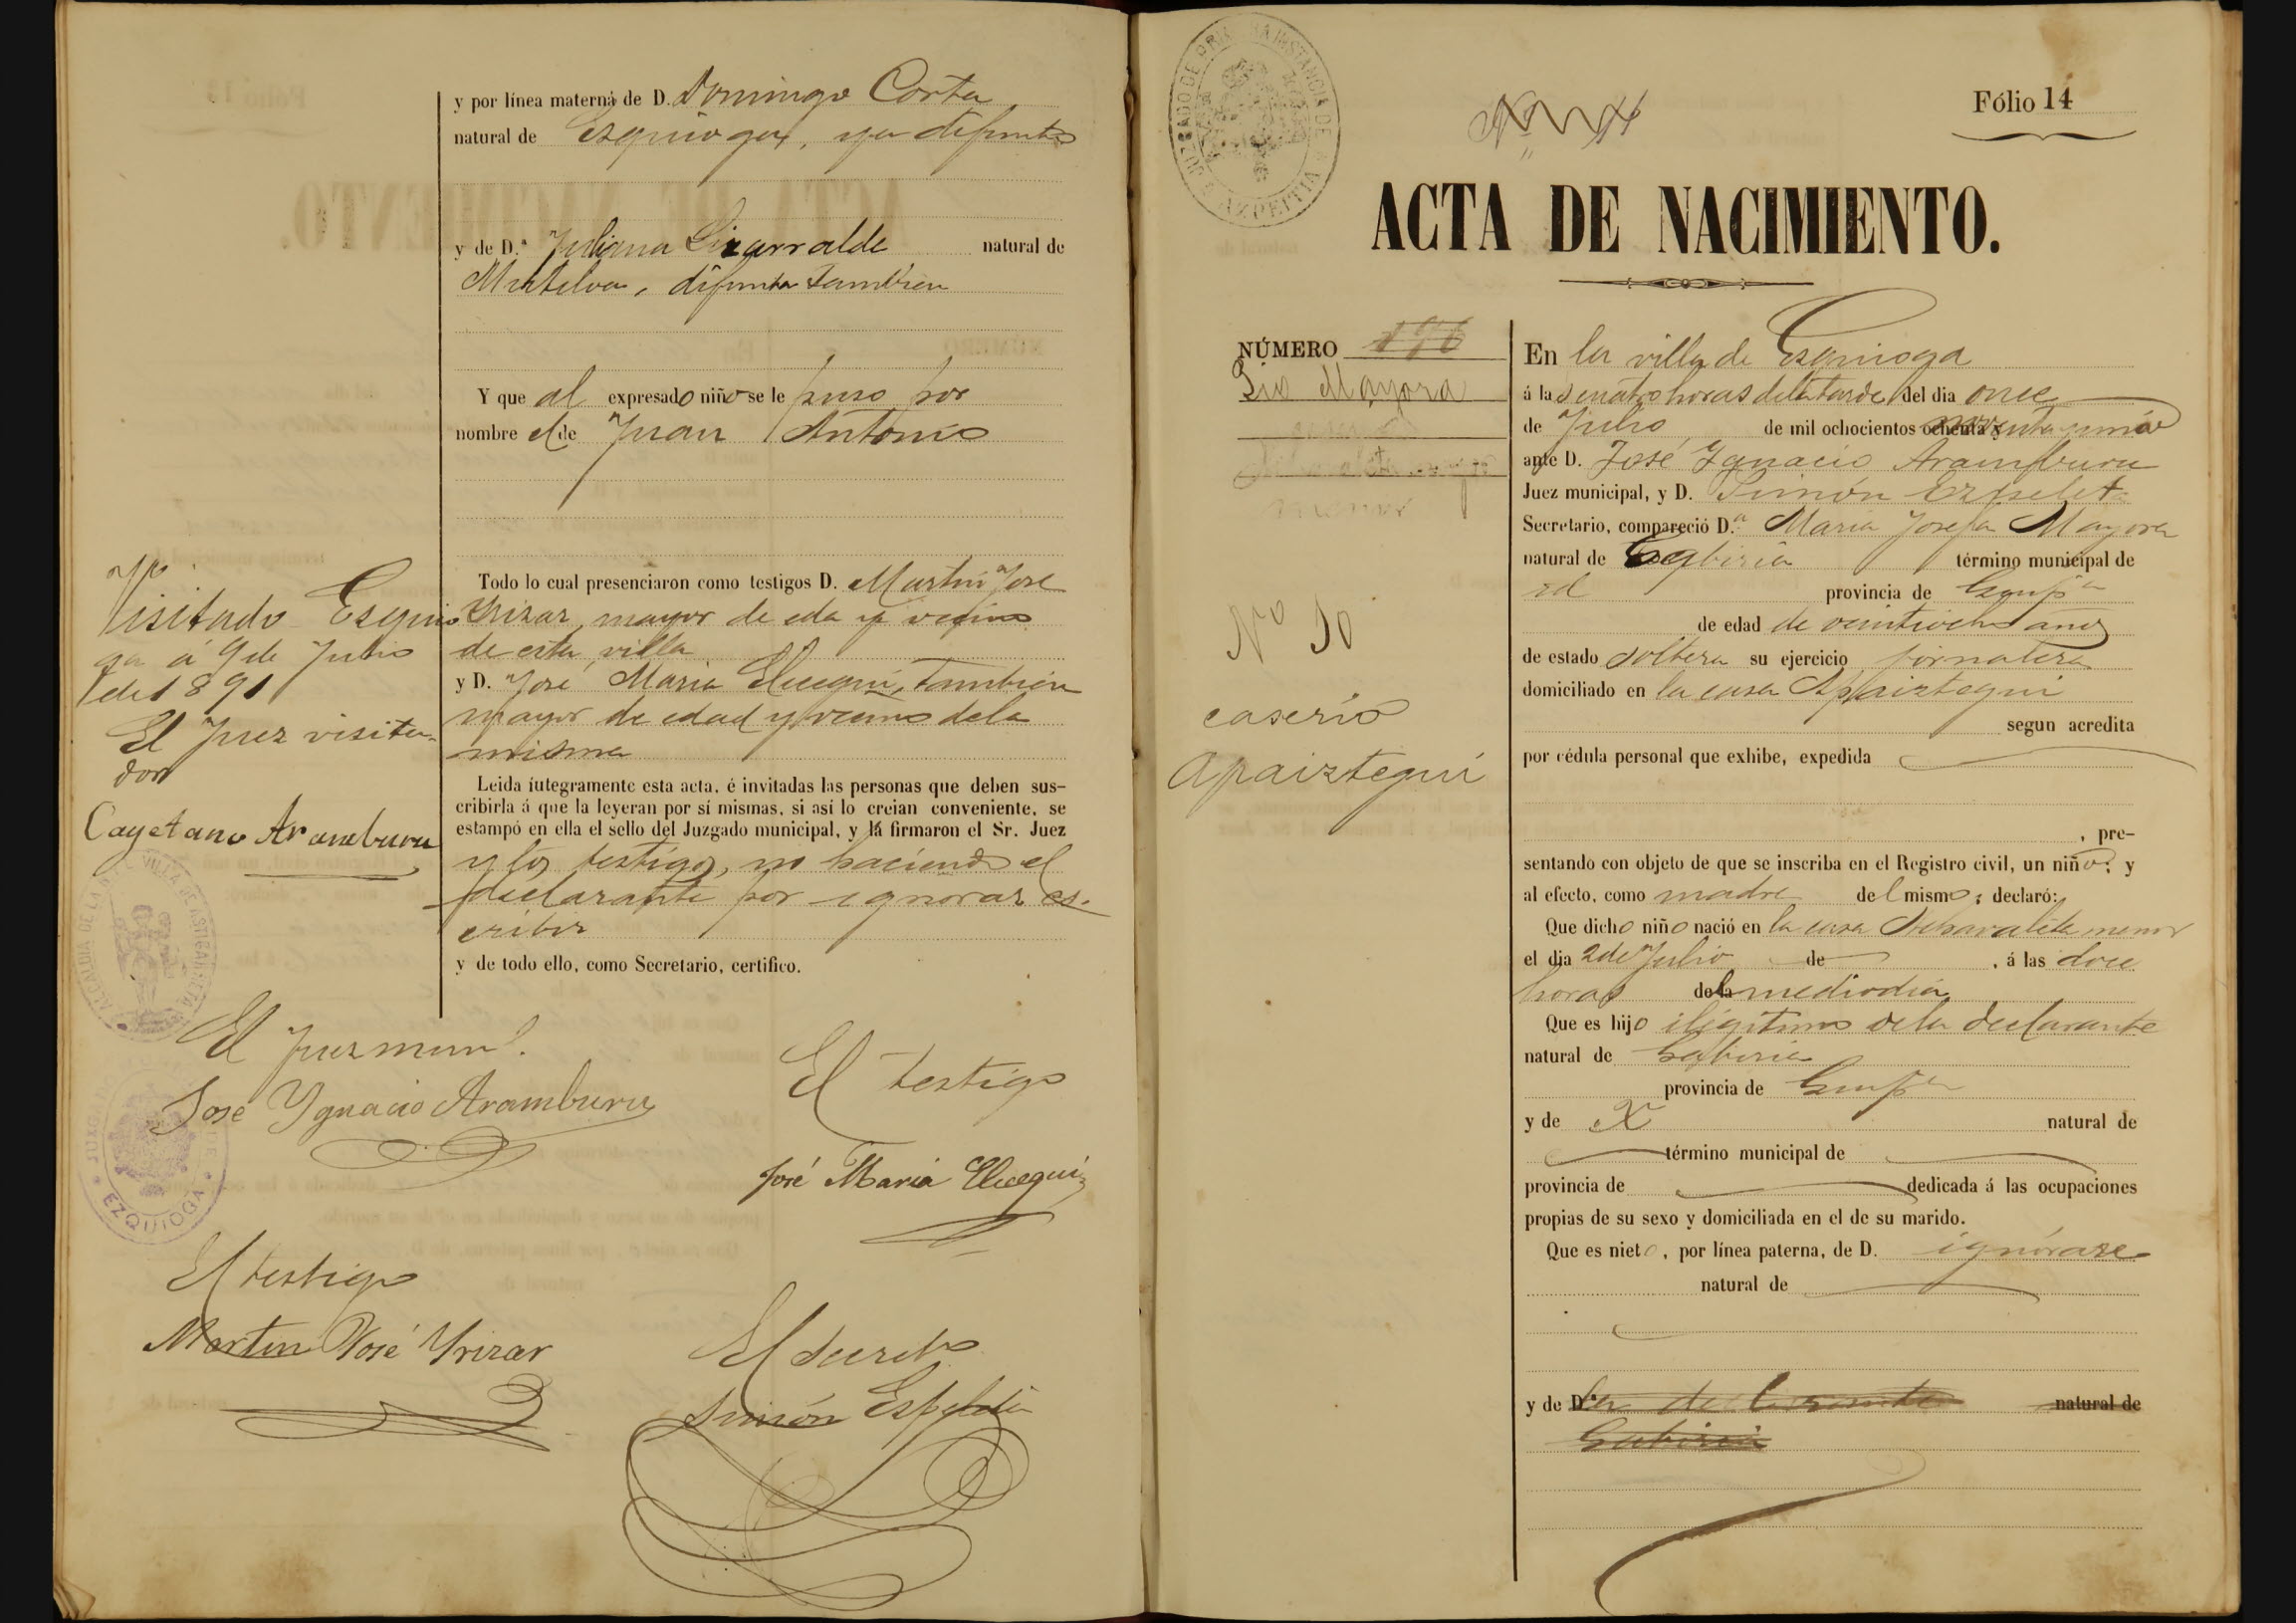 y por línea materna de D. Domingo Corta
natural de Esquioga, ya difunto
y de D.ª Juliana Lizarralde natural de
Mutiloa, difunta tambien
Y que al expresado niño se le puso por
nombre el de Juan Antonio
Todo lo cual presenciaron como testigos D. Martin Jose
Yrizar, mayor de eda y vecino
de esta villa
y D. José Maria Elicegui, tambien
mayor de edad y vecino de la
misma
Leida íntegramente esta acta, é invitadas las personas que deben sus-
cribirla á que la leyeran por sí mismas, si así lo creian conveniente, se
estampó en ella el sello del Juzgado municipal, y la firmaron el Sr. Juez
y los testigos, no haciendo el
declarante por ignorar es-
cribir
y de todo ello, como Secretario, certifico.
Visitado Esquio
ga á 9 de Julio
de 1891
El Juez visita-
dor
Cayetano Aramburu
El Juez mun.l
José Ygnacio Aramburu
El testigo
José Maria Elicegui
El testigo
Martin José Yrizar
El Secret.o
Simón Ezpeleta
JUZGADO
EZQUIOGA
JUZGADO DE PRIMERA INSTANCIA DE
AZPEITIA
Fólio 14
ACTA DE NACIMIENTO.
NÚMERO 176
Pio Mayora
Nº 10
caserio
Apaiztegui
En la villa de Esquioga
á las cuatro horas de la tarde del dia once
de Julio de mil ochocientos noventa y uno
ante D. José Ygnacio Aramburu
Juez municipal, y D. Simón Ezpeleta
Secretario, compareció D.ª Maria Josefa Mayora
natural de Gabiria término municipal de
id provincia de Guip.a
de edad de veintiocho años
de estado soltera su ejercicio jornalera
domiciliado en la casa Apaiztegui
segun acredita
por cédula personal que exhibe, expedida
, pre-
sentando con objeto de que se inscriba en el Registro civil, un niño; y
al efecto, como madre del mismo; declaró:
Que dicho niño nació en la casa menor
el dia 2 de Julio de , á las doce
horas del mediodia
Que es hijo ilegitimo de la declarante
natural de Gabiria
provincia de Guip.a
y de X natural de
término municipal de
provincia de dedicada á las ocupaciones
propias de su sexo y domiciliada en el de su marido.
Que es nieto, por línea paterna, de D. ignórase
natural de
y de D.ª la declarante natural de
Gabiria